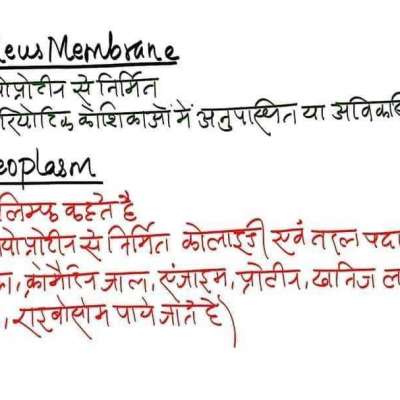 leus Membrane
योप्रोटीन से निर्मित
रियोटिक कोशिकाओं में अनुपास्थित या अविकसि
eoplasm
लिम्फ कहते है
योप्रोटीन से निर्मित कोलाइडी एवं तरल पदा
क्रोमैटिन जाल, एंजाइम, प्रोटीन, खनिज ल
, राइबोसोम पाये जाते है)